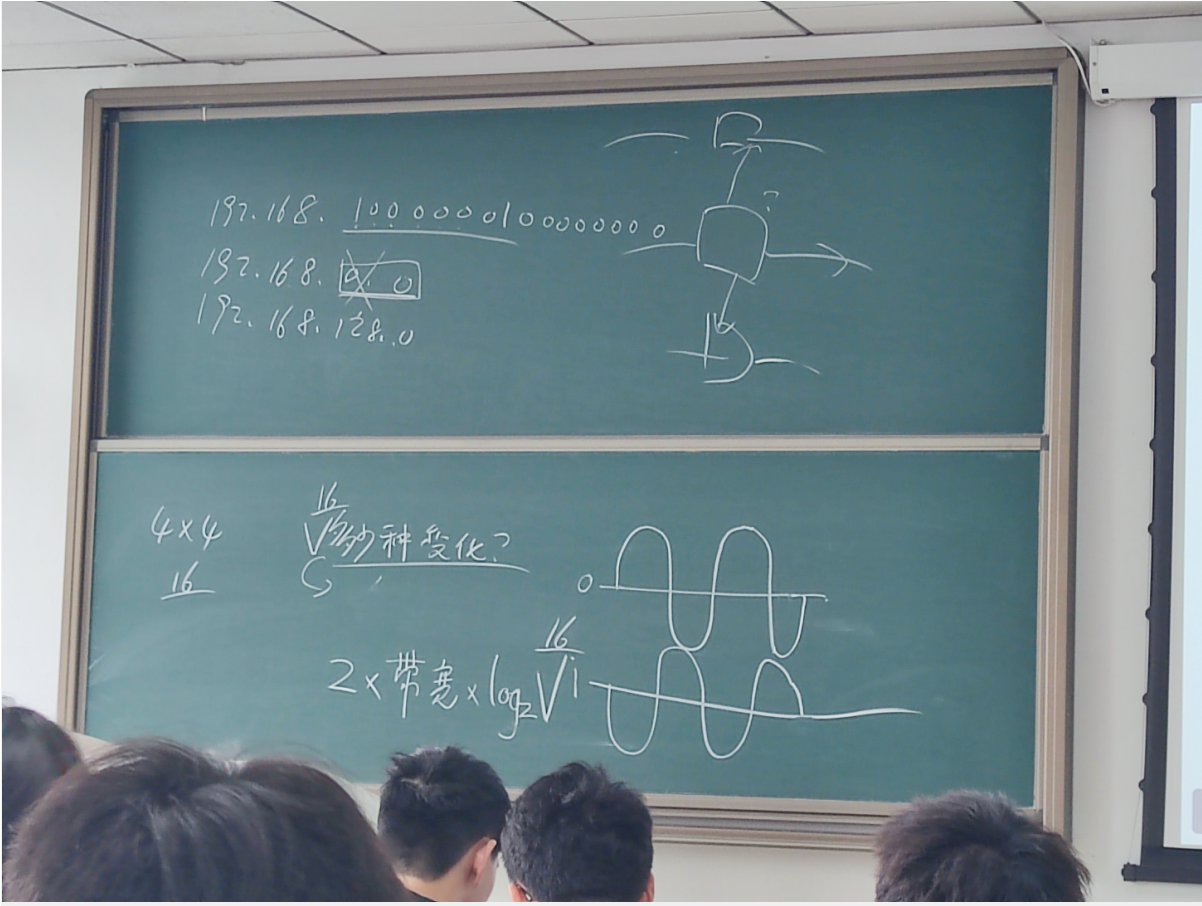 192.168. 1000000100000000
192.168. 0. 0
192.168.128.0
?
4×4
16
16
V多少种变化?
0
16
2×带宽×log₂V
1